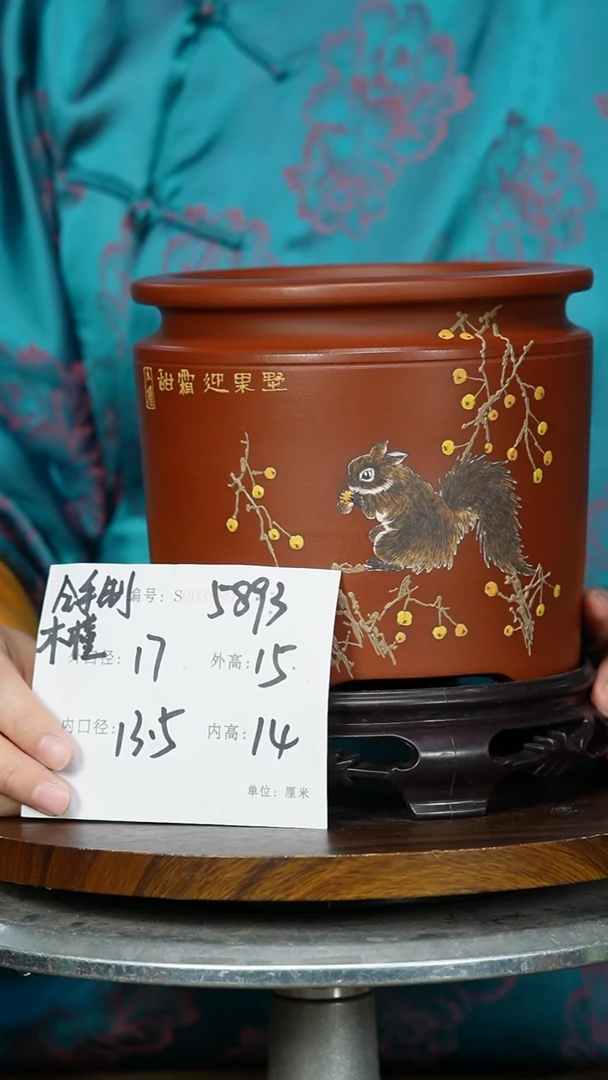 墅果迎霜甜
全手制 编号: S 5893
木槿
外口径: 17 外高: 15
内口径: 13.5 内高: 14
单位: 厘米